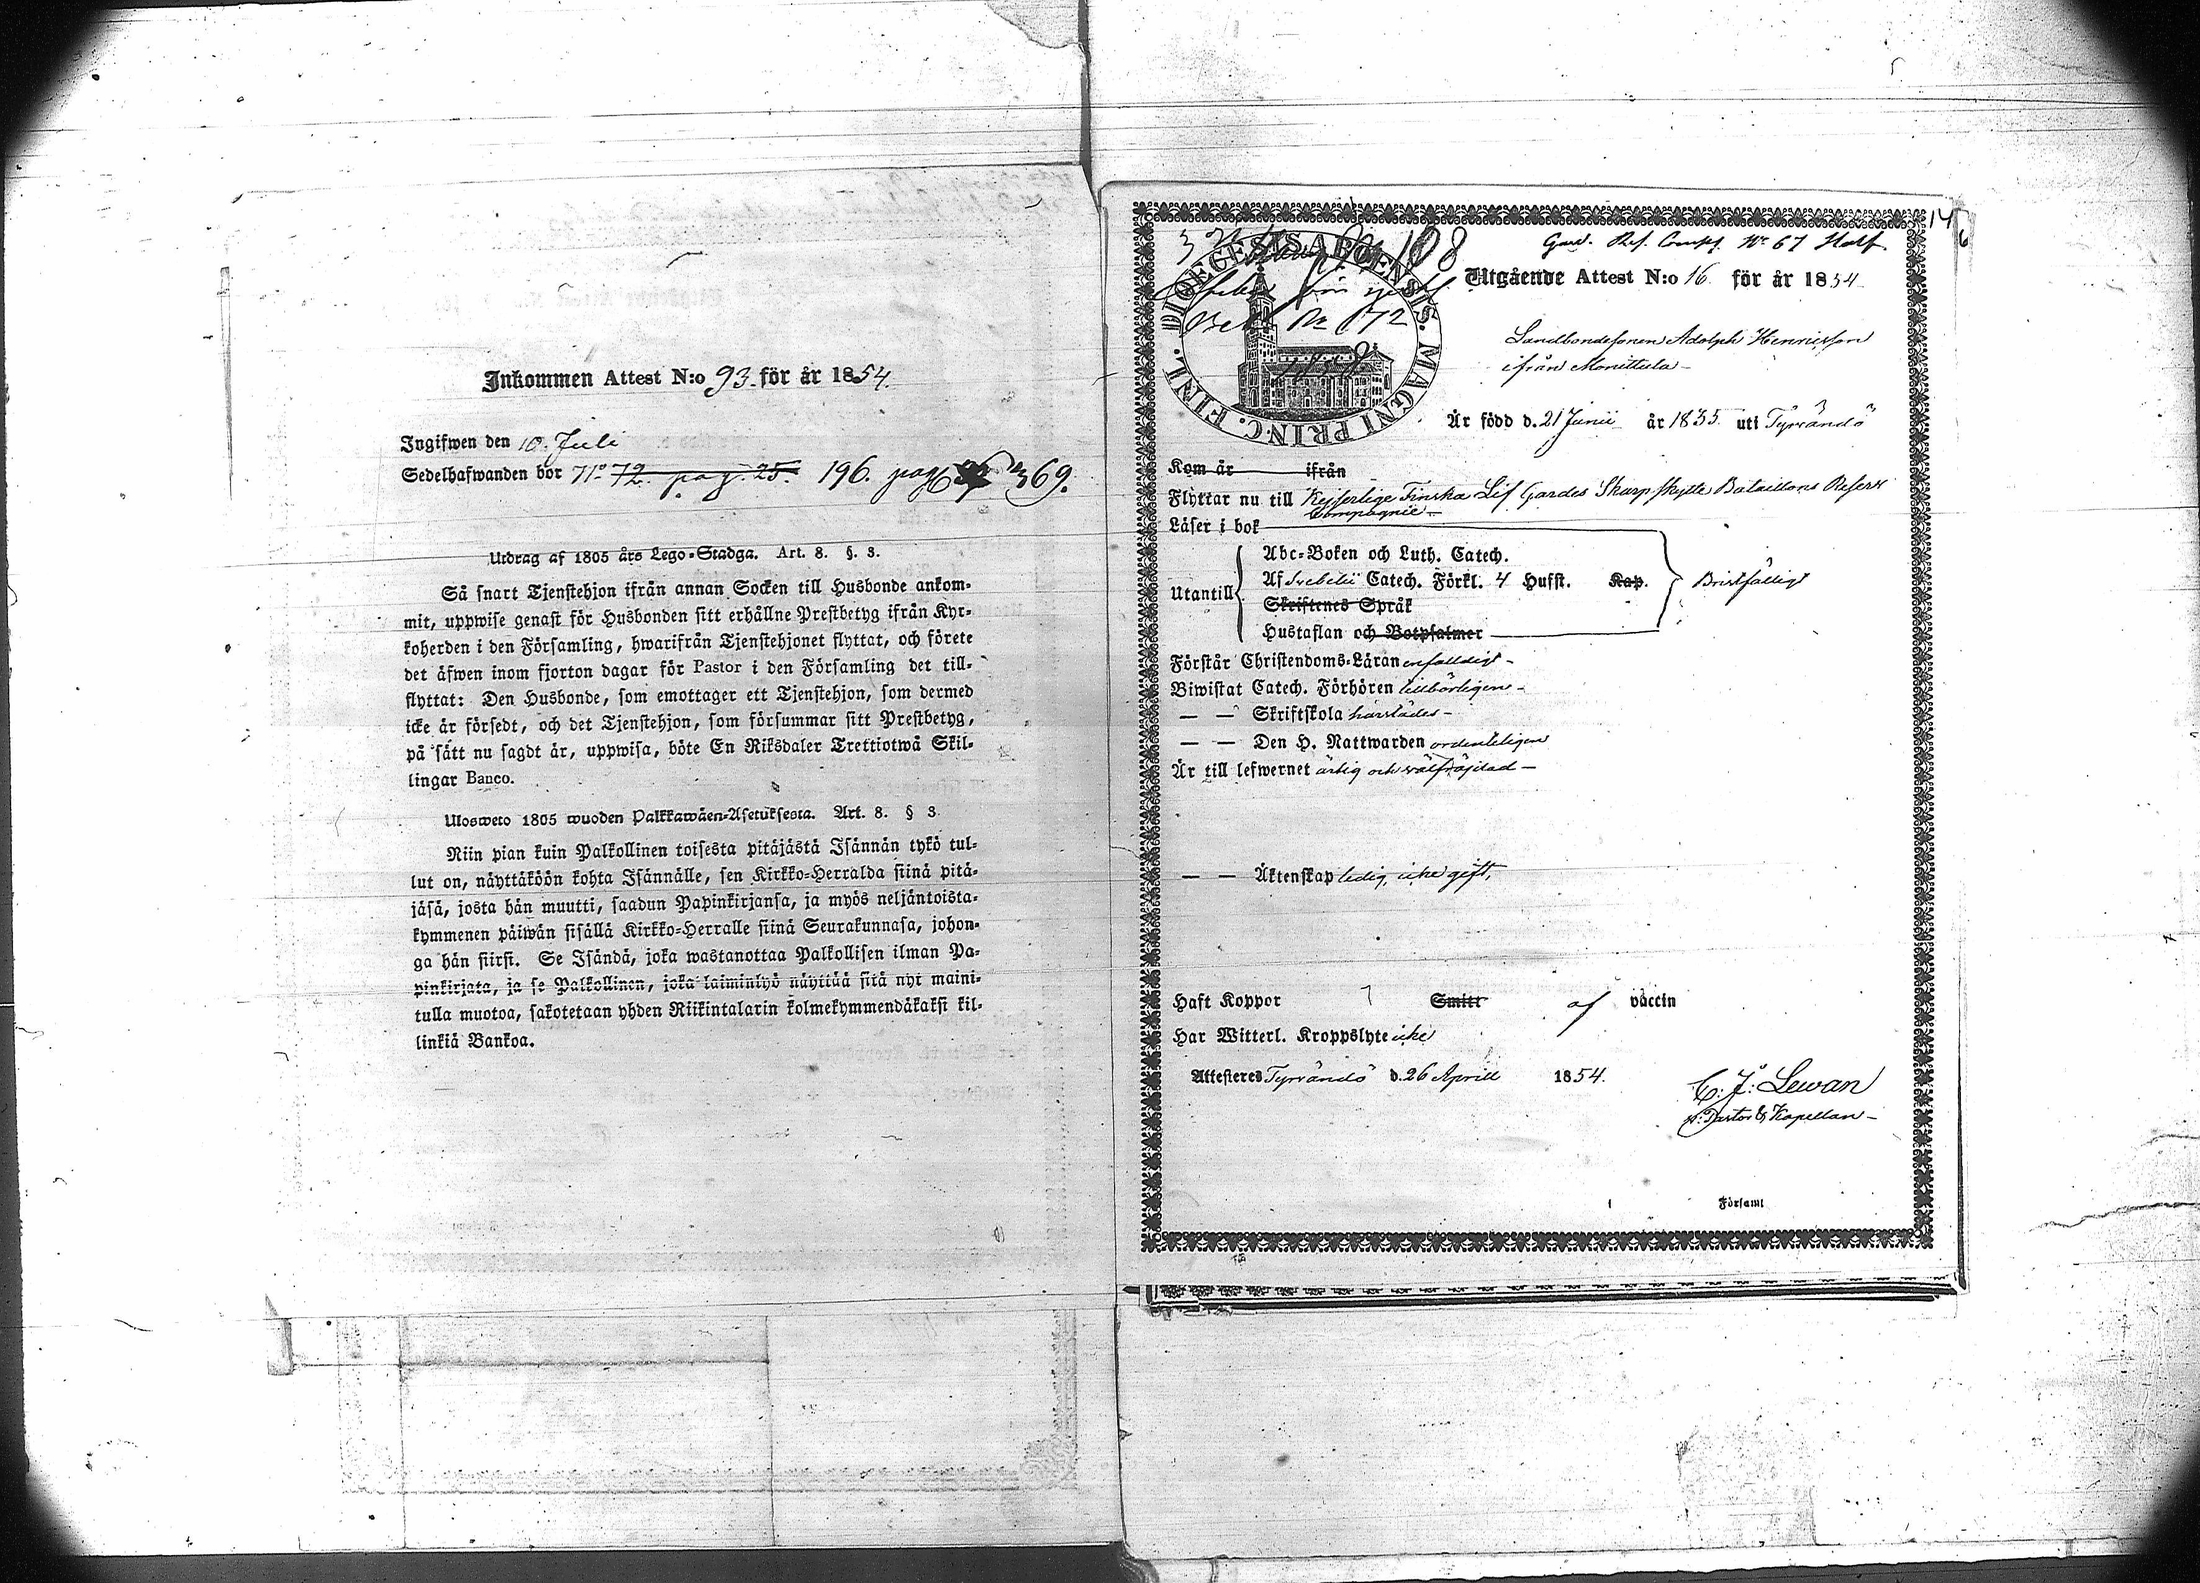 Inkommen Attest N:o 93. för år 1854.
Ingifwen den 10. Juli
Sedelhafwanden bor N:o 72. pag. 25. 196. pag 369.
Utdrag af 1805 års Lego-Stadga. Art. 8. §. 3.
Så snart Tjenstehjon ifrån annan Socken till Husbonde ankom-
mit, uppwise genast för Husbonden sitt erhållne Prestbetyg ifrån Kyr-
koherden i den Församling, hwarifrån Tjenstehjonet flyttat, och förete
det äfwen inom fjorton dagar för Pastor i den Församling det till-
flyttat: Den Husbonde, som emottager ett Tjenstehjon, som dermed
icke är försedt, och det Tjenstehjon, som försummar sitt Prestbetyg,
på sätt nu sagdt är, uppwisa, böte En Riksdaler Trettiotwå Skil-
lingar Banco.
Ulosweto 1805 wuoden Palkkawäen-Asetuksesta. Art. 8. § 3.
Niin pian kuin Palkollinen toisesta pitäjästä Isännän tykö tul-
lut on, näyttäköön kohta Isännälle, sen Kirkko-Herralda siinä pitä-
jäsä, josta hän muutti, saadun Papinkirjansa, ja myös neljäntoista-
kymmenen päiwän sisällä Kirkko-Herralle siinä Seurakunnasa, johon-
ga hän siirsi. Se Isändä, joka wastanottaa Palkollisen ilman Pa-
pinkirjata, ja se Palkollinen, joka laiminlyö näyttää sitä nyt maini-
tulla muotoa, sakotetaan yhden Riikintalarin kolmekymmendäkaksi kil-
linkiä Bankoa.
14
6
108
Gard. Res. Comp. N:o 67 Half
DIOECESIS ABOENSIS. MAGNI PRINC. FINL.
1858
Utgående Attest N:o 16 för år 1854
Landbondesonen Adolph Henriksson
ifrån Monittula
Är född d. 21 Junii år 1835 uti Tyrvändö
Kom år ifrån
Flyttar nu till Kejserlige Finska Lif Gardes Skarpskytte Bataillons Reserv
Compagnie
Läser i bok
Abc-Boken och Luth. Catech.
Utantill Af Svebelii Catech. Förkl. 4 Hufst. Kap. Bristfälligt
Skriftenes Språk
Hustaflan och Botpsalmer
Förstår Christendoms-Läran enfaldigt
Biwistat Catech. Förhören tillbörligen
— — Skriftskola härstädes
— — Den H. Nattwarden ordenteligen
Är till lefwernet ärlig och välfräjdad
— — Äktenskap ledig, icke gift,
Haft Koppor Smitt af vaccin
Har Witterl. Kroppslyte icke
Attesteres Tyrvändö d. 26 Aprill 1854.
C. J. Lewan
v: Pastor & Kapellan
Församl